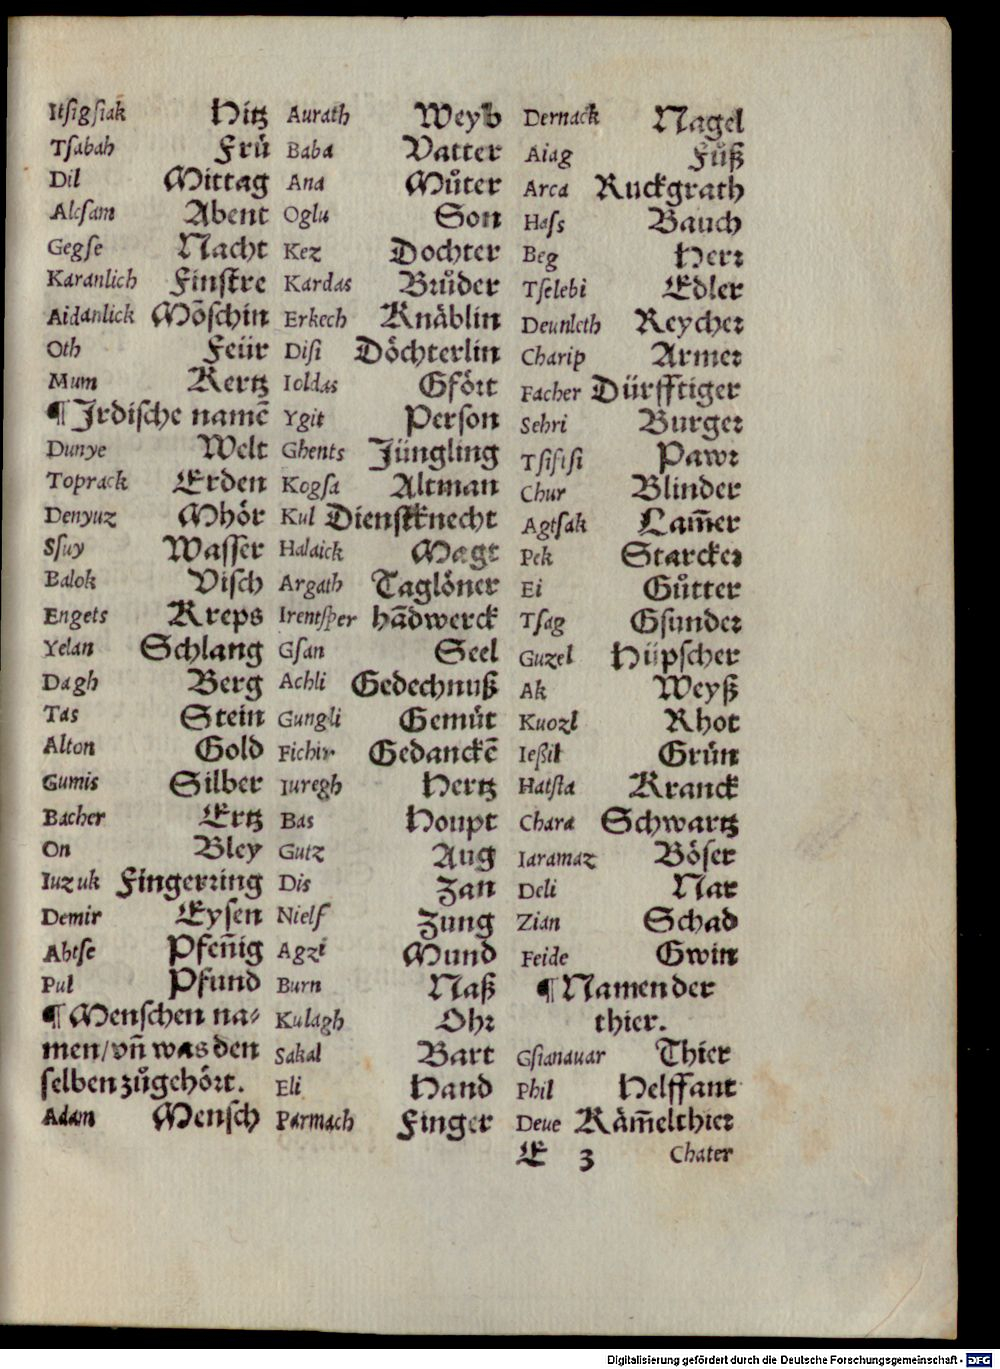 Itſigſiak Hitz
Tſabah Frů
Dil Mittag
Alcſam Abent
Gegſe Nacht
Karanlich Finſtre
Aidanlick Mõſchin
Oth Feür
Mum Kertz
¶ Irdiſche namẽ
Dunye Welt
Toprack Erden
Denyuz Mhör
Sſuy Waſſer
Balok Viſch
Engets Kreps
Yelan Schlang
Dagh Berg
Tas Stein
Alton Gold
Gumis Silber
Bacher Ertz
On Bley
Iuzuk Fingerꝛing
Demir Eyſen
Abtſe Pfeñig
Pul Pfund
¶ Menſchen na⸗
men/ vñ was den
ſelben zůgehöꝛt.
Adam Menſch
Aurath Weyb
Baba Vatter
Ana Můter
Oglu Son
Kez Dochter
Kardas Bꝛůder
Erkech Knäblin
Diſi Döchterlin
Ioldas Gföꝛt
Ygit Perſon
Ghents Jüngling
Kogſa Altman
Kul Dienſtknecht
Halaick Magt
Argath Taglöner
Irentſper hãdwerck
Gſan Seel
Achli Gedechnuß
Gungli Gemüt
Fichir Gedanckẽ
Iuregh Hertz
Bas Houpt
Gutz Aug
Dis Zan
Nielſ Zung
Agzi Mund
Burn Naß
Kulagh Ohꝛ
Sakal Bart
Eli Hand
Parmach Finger
Dernack Nagel
Aiag Fůß
Arca Ruckgrath
Haſs Bauch
Beg Herꝛ
Tſelebi Edler
Deunleth Reycheꝛ
Charip Armeꝛ
Facher Dürfftiger
Sehri Burgeꝛ
Tſiſtſi Pawꝛ
Chur Blinder
Agtſak Lam̃er
Pek Starckeꝛ
Ei Gůtter
Tſag Gſundeꝛ
Guzel Hüpſcher
Ak Weyß
Kuozl Rhot
Ießil Grün
Hatſta Kranck
Chara Schwartz
Iaramaz Böſer
Deli Nar
Zian Schad
Feide Gwin
¶ Namen der
thier.
Gſianauar Thier
Phil Helffant
Deue Käm̃elthieꝛ
E 3 Chater
Digitalisierung gefördert durch die Deutsche Forschungsgemeinschaft - DFG